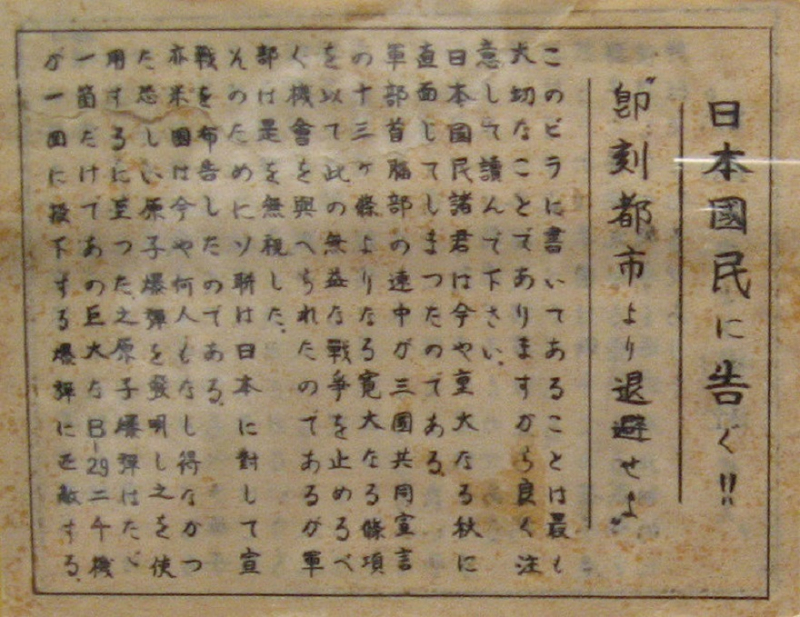 日本國民に告ぐ!!
"卽刻都市より退避せよ"
このビラに書いてあることは最も
大切なことでありますから良く注
意して讀んで下さい。
日本國民諸君は今や重大なる秋に
直面してしまつたのである。
軍部首脳部の連中が三國共同宣言
の十三ヶ條よりなる寛大なる條項
を以て此の無益な戦争を止めるべ
く機會を與へられたのであるが軍
部は是を無視した。
そのためにソ聯は日本に對して宣
戦を布告したのである。
亦米國は今や何人もなし得なかつ
た恐しい原子爆弾を發明し之を使
用するに至つた之原子爆弾はたゞ
一箇だけであの巨大なB-29二千機
が一回に投下する爆弾に匹敵する。